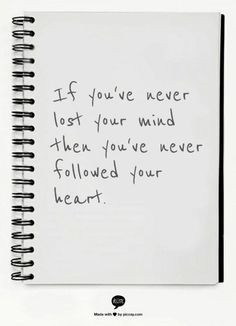 If you've never
lost your mind
then you've never
followed your
heart.
Made with ♥ by piccsy.com